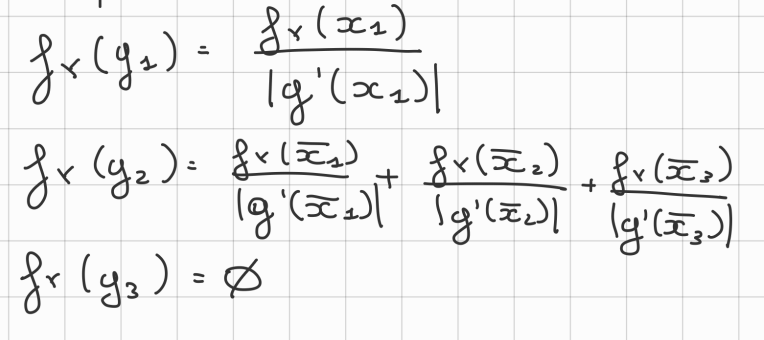 fr(y₁) = fr(x₁) / |g'(x₁)|
fr(y₂) = fr(x̅₁) / |g'(x̅₁)| + fr(x̅₂) / |g'(x̅₂)| + fr(x̅₃) / |g'(x̅₃)|
fr(y₃) = ∅